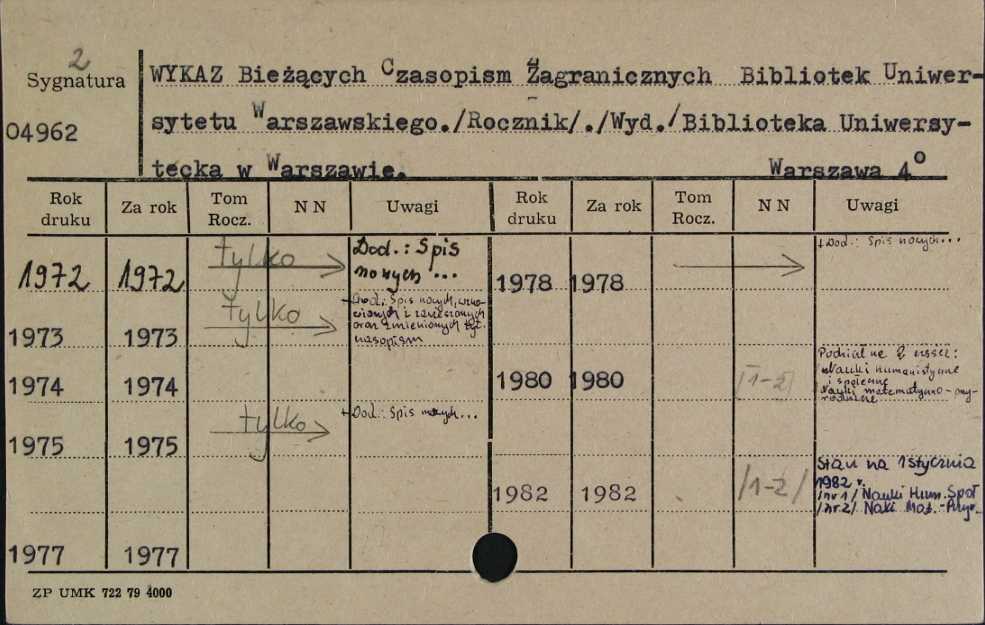 2
Sygnatura
04962
WYKAZ Bieżących Czasopism Zagranicznych Bibliotek Uniwer-
sytetu Warszawskiego./Rocznik/./Wyd./Biblioteka Uniwersy-
tecka w Warszawie. Warszawa 4°
Rok druku Za rok Tom Rocz. N N Uwagi Rok druku Za rok Tom Rocz. N N Uwagi
1972 1972 tylko Dod.: Spis
nowych ...
1973 1973 tylko + Dod.: Spis nowych, wzno-
wionych i zawieszonych
oraz zmienionych tyt.
czasopism
1974 1974
1975 1975 tylko + Dod.: Spis nowych...
1977 1977
1978 1978 + Dod.: Spis nowych...
1980 1980 [1-2] Podział na 2 części:
Nauki humanistyczne
i społeczne
Nauki matematyczno-przy-
rodnicze
1982 1982 /1-2/ Stan na 1 stycznia
1982 r.
/nr 1/ Nauki Hum. Społ
/nr 2/ Naki Mat.-Przyr.
ZP UMK 722 79 4000